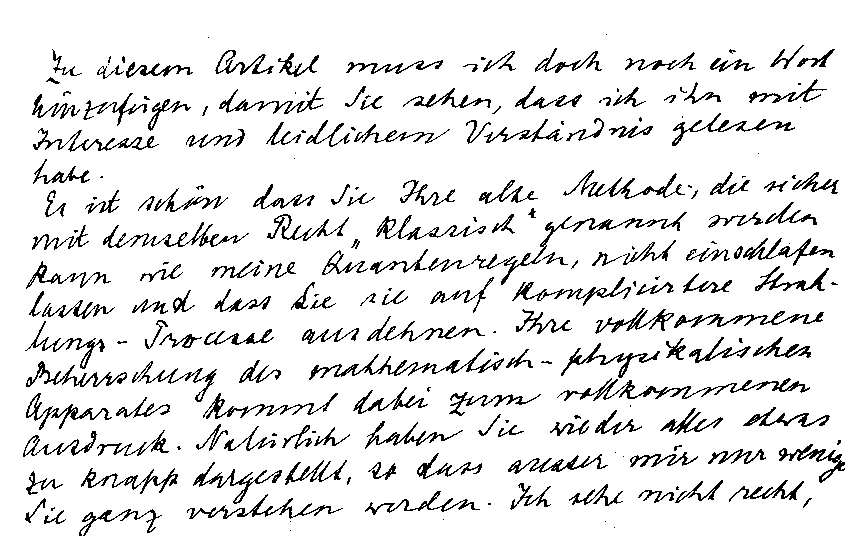 Zu diesem Artikel muss ich doch noch ein Wort
hinzufügen, damit Sie sehen, dass ich ihn mit
Interesse und leidlichem Verständnis gelesen
habe.
Es ist schön dass Sie Ihre alte Methode, die sicher
mit demselben Recht „klassisch“ genannt werden
kann wie meine Quantenregeln, nicht einschlafen
lassen und dass Sie sie auf kompliciertere Strah-
lungs-Processe ausdehnen. Ihre vollkommene
Beherrschung des mathematisch-physikalischen
Apparates kommt dabei zum vollkommenen
Ausdruck. Natürlich haben Sie wieder alles etwas
zu knapp dargestellt, so dass ausser mir nur wenige
Sie ganz verstehen werden. Ich sehe nicht recht,